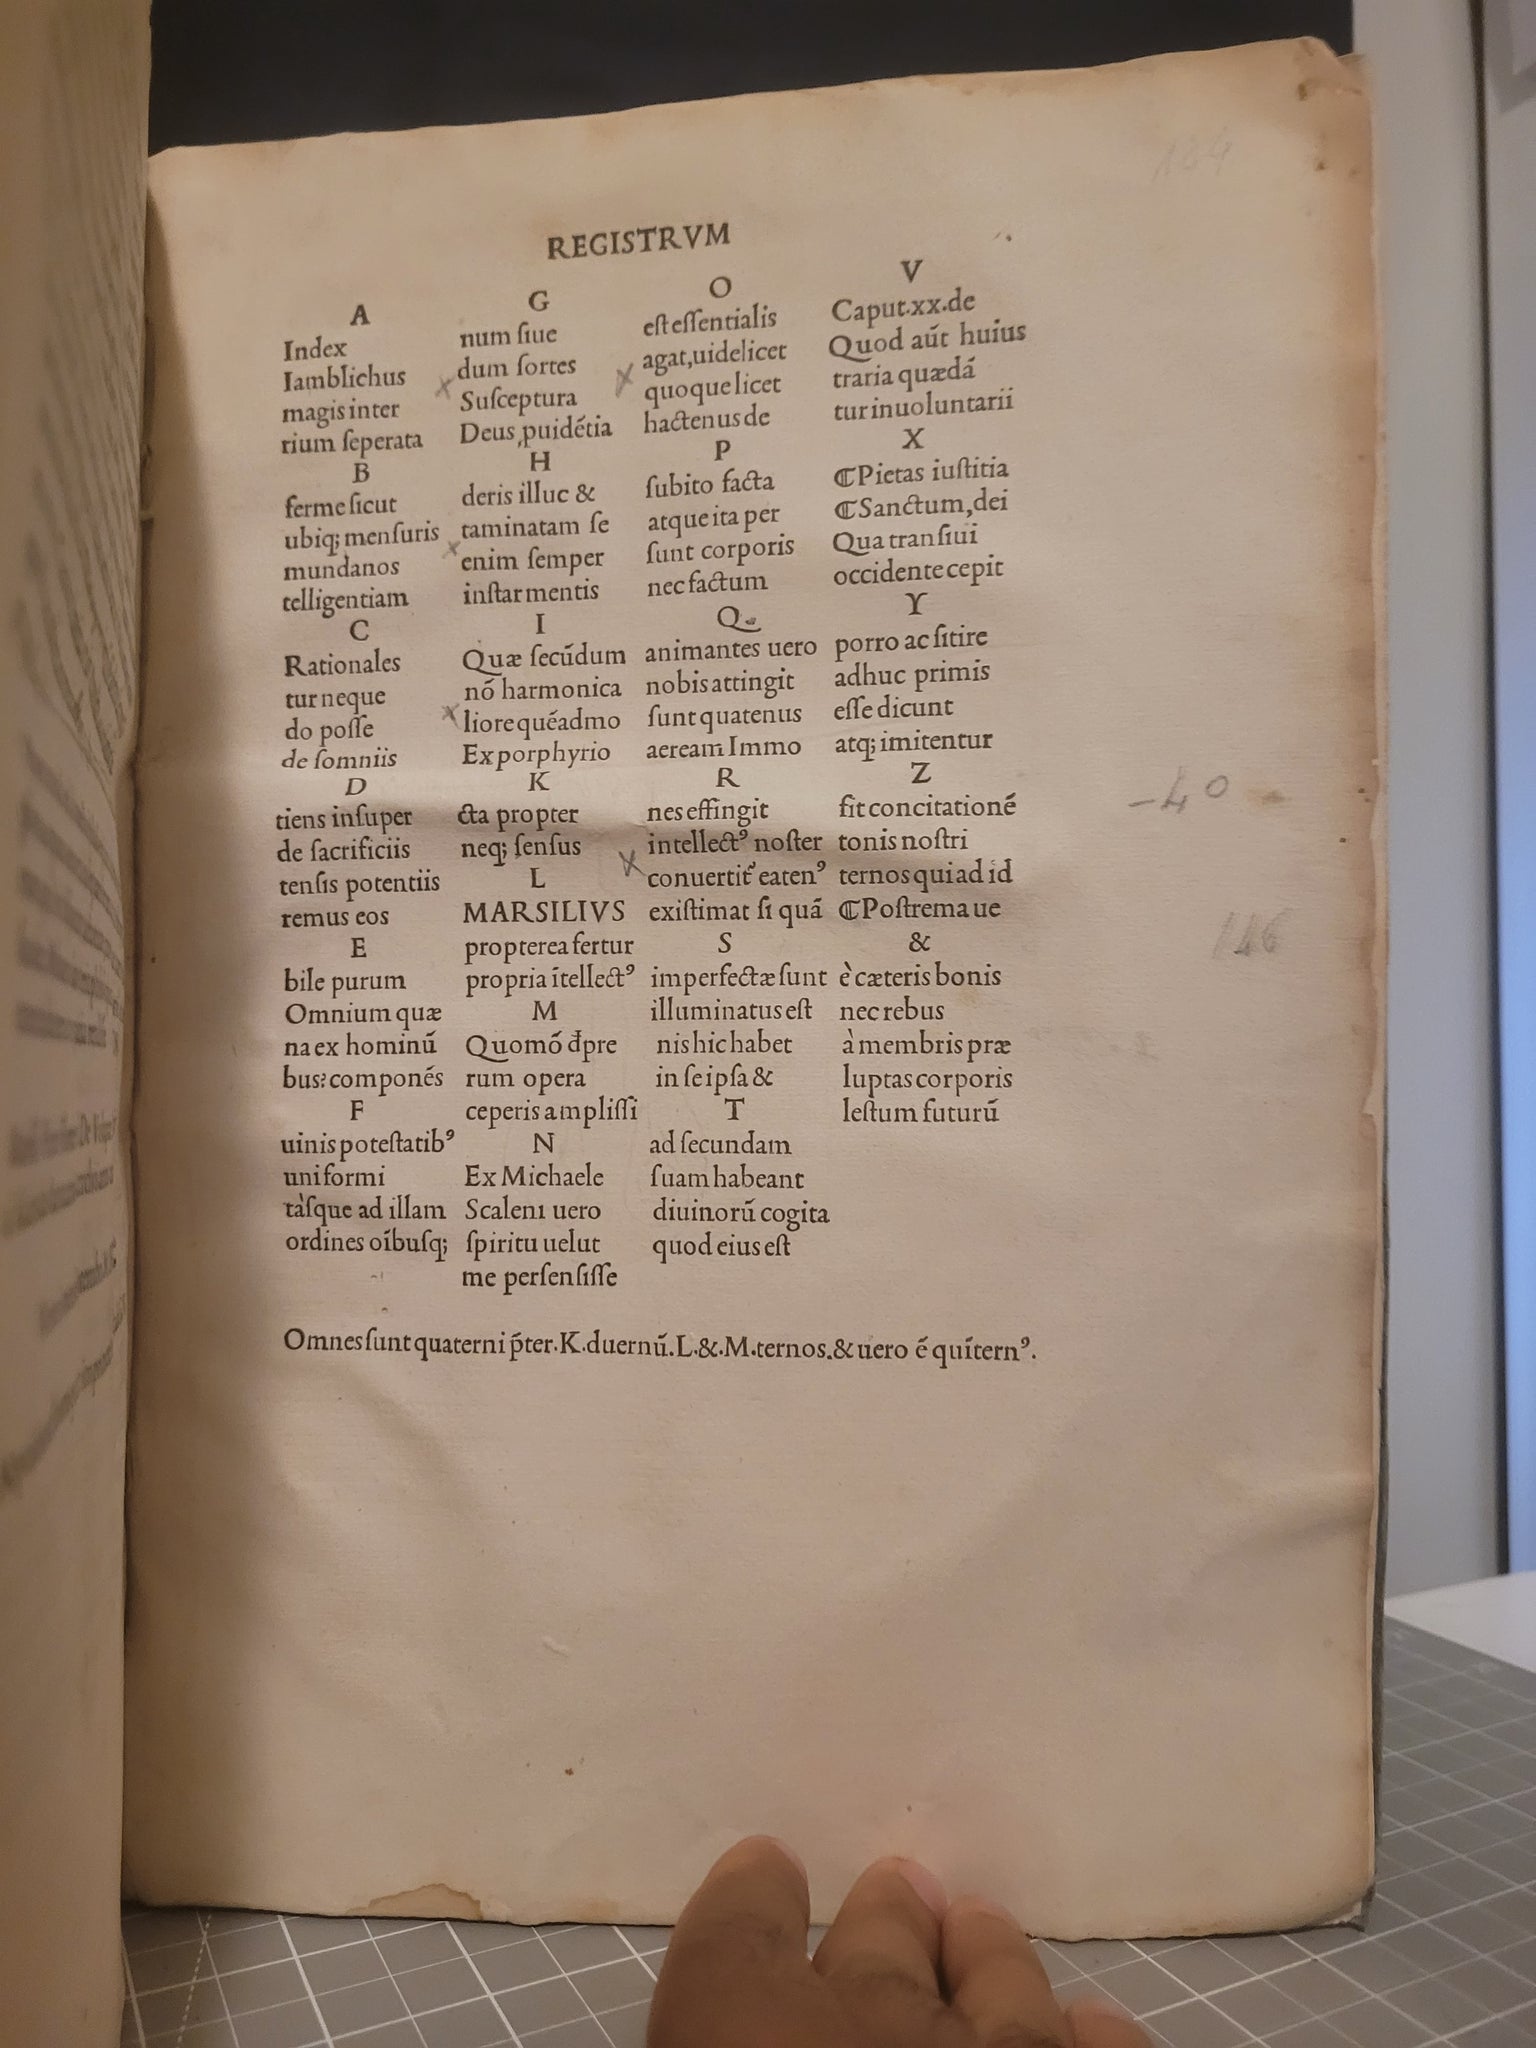 184
REGISTRVM
A
Index
Iamblichus
magis inter
rium ſeperata
B
ferme ſicut
ubiq; menſuris
mundanos
telligentiam
C
Rationales
tur neque
do poſſe
de ſomniis
D
tiens inſuper
de ſacrificiis
tenſis potentiis
remus eos
E
bile purum
Omnium quæ
na ex hominū
bus: componēs
F
uinis poteſtatibꝰ
uniformi
tàſque ad illam
ordines oībuſq;
G
num ſiue
dum ſortes
Suſceptura
Deus ꝓuidētia
H
deris illuc &
taminatam ſe
enim ſemper
inſtar mentis
I
Quæ ſecūdum
nō harmonica
liore quēadmo
Ex porphyrio
K
cta propter
neq; ſenſus
L
MARSILIVS
propterea fertur
propria ītellectꝰ
M
Quomō đpre
rum opera
ceperis ampliſſi
N
Ex Michaele
Scaleni uero
ſpiritu uelut
me perſenſiſſe
O
eſt eſſentialis
agat, uidelicet
quoque licet
hactenus de
P
ſubito facta
atque ita per
ſunt corporis
nec factum
Q
animantes uero
nobis attingit
ſunt quatenus
aeream Immo
R
nes effingit
intellectꝰ noſter
conuertit᷑ eatenꝰ
exiſtimat ſi quā
S
imperfectæ ſunt
illuminatus eſt
nis hic habet
in ſe ipſa &
T
ad ſecundam
ſuam habeant
diuinorū cogita
quod eius eſt
V
Caput.xx.de
Quod aūt huius
traria quædā
tur inuoluntarii
X
⸿Pietas iuſtitia
⸿Sanctum, dei
Qua tranſiui
occidente cepit
Y
porro ac ſitire
adhuc primis
eſſe dicunt
atq; imitentur
Z
fit concitationē
tonis noſtri
ternos qui ad id
⸿Poſtrema ue
&
è cæteris bonis
nec rebus
à membris præ
luptas corporis
leſtum futurū
Omnes ſunt quaterni p̄ter.K.duernū.L.&.M.ternos.& uero ē quīternꝰ.
-40
146